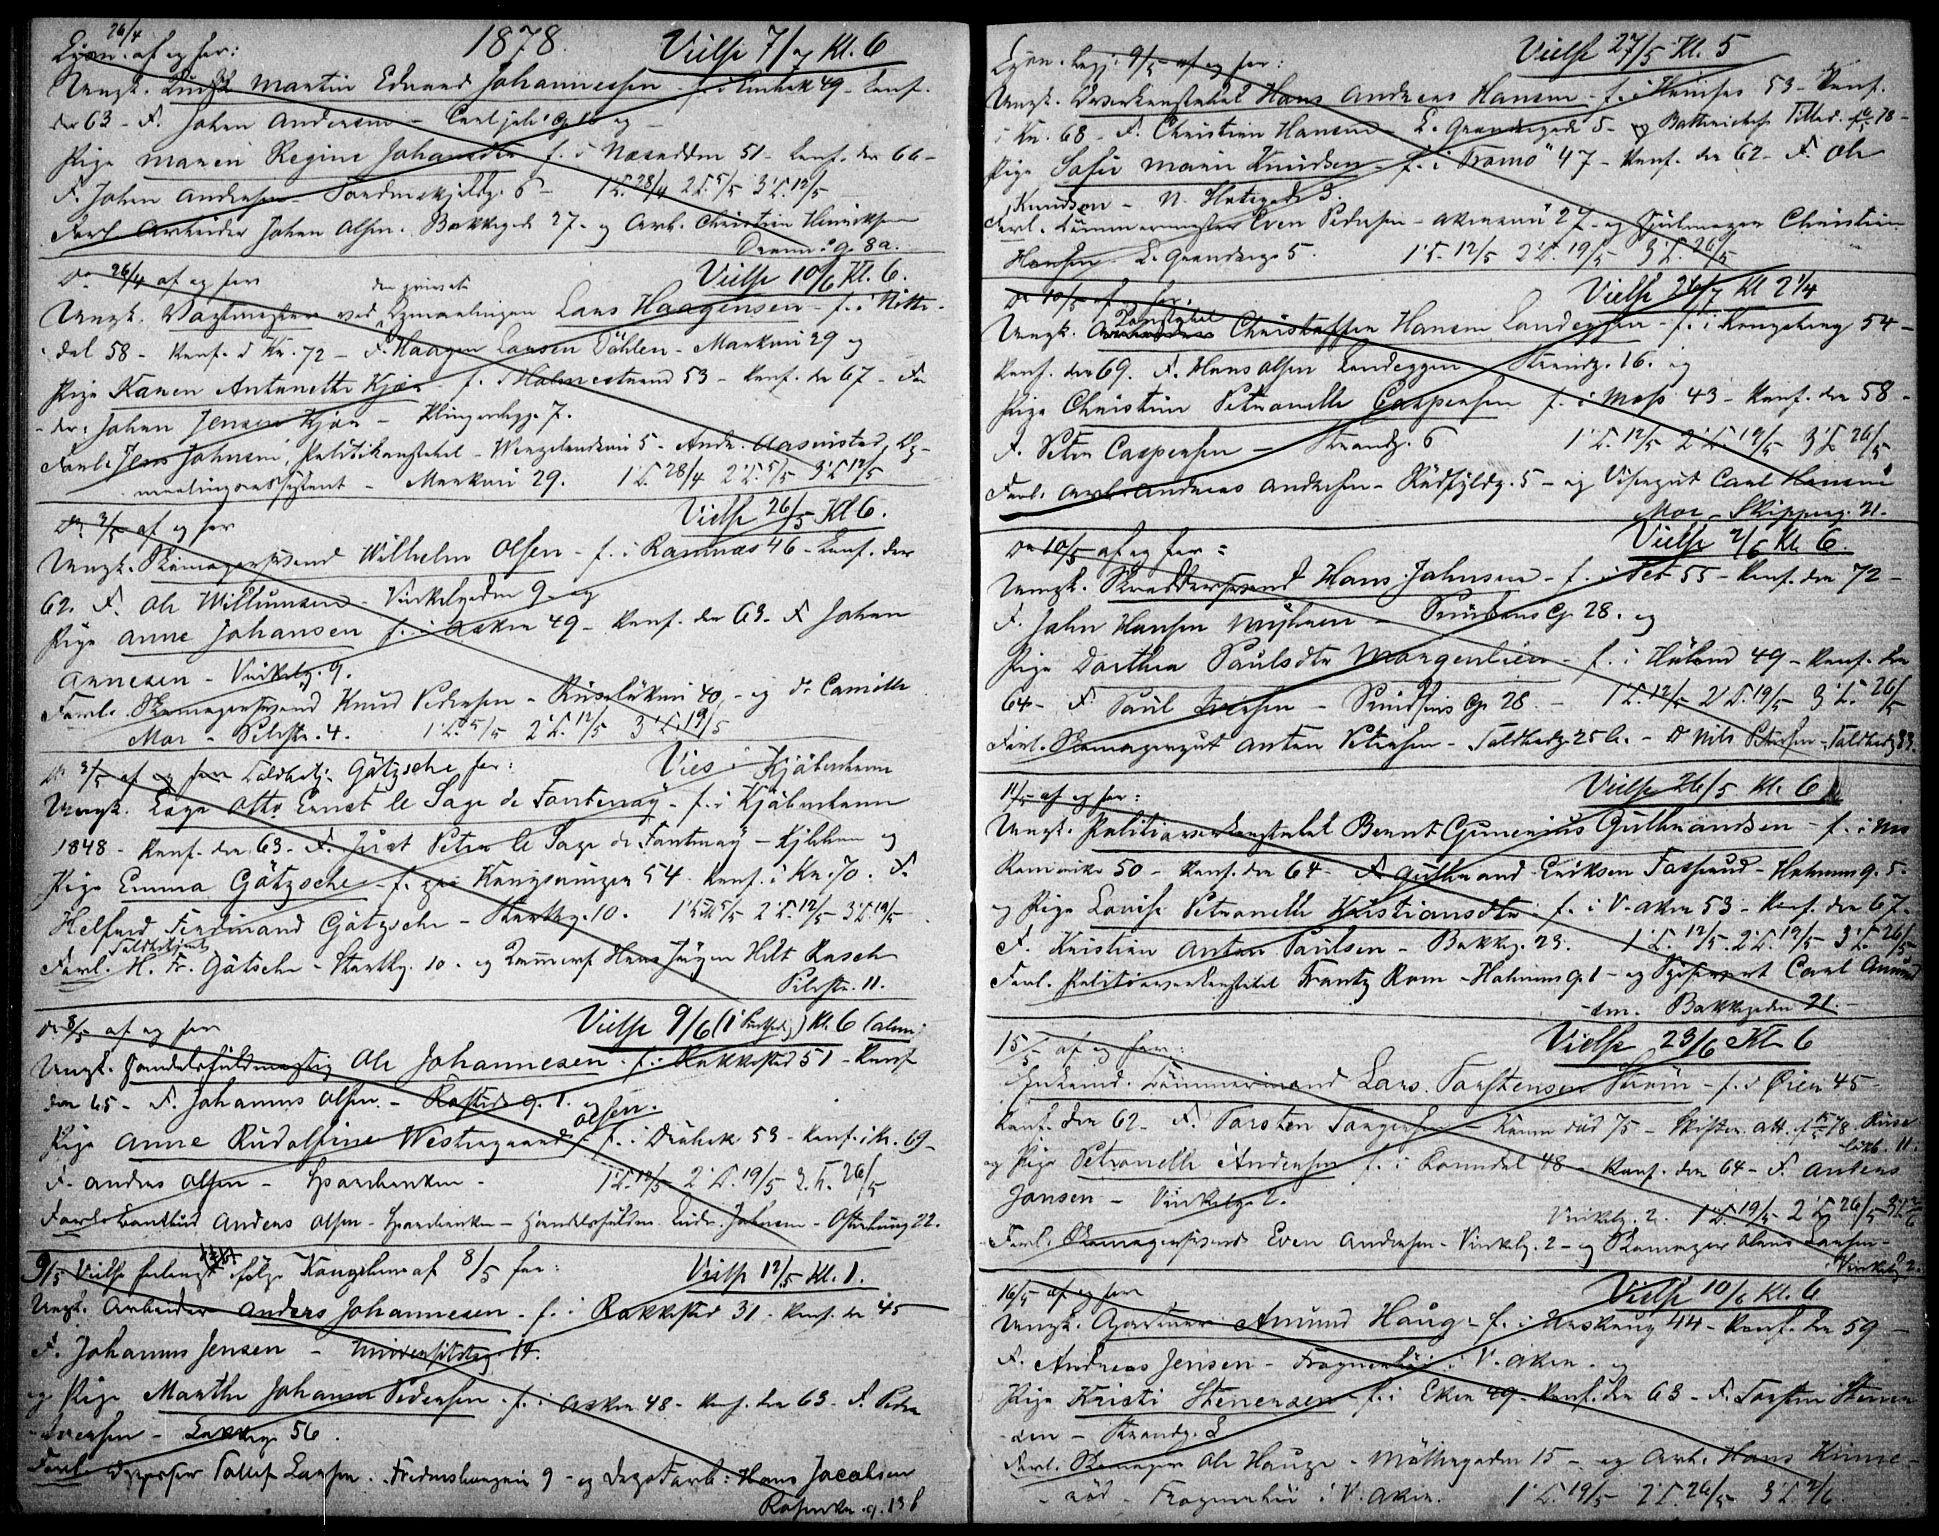 26/4
Lysn. af og for:
1878.
Vielse 7/7 Kl. 6
Ungk. Martin Edvard Johannessen - f. i 49 - Konf.
der 63 - F. Johan Andersen - Carl joh. g. 16 og
Pige Maren Regine Johansdtr f. i Næsodden 51 - Konf. der 66 -
F. Johan Andersen - Tordenskjoldg. 6 - 1 L. 28/4 2 L. 5/5 3 L. 12/5
Forl. Arbeider Johan Olsen. Bakkegade 27. og Arb. Christian Henriksen
Dramsv. 8a.
Do 26/4 af og for
Vielse 10/6 Kl. 6.
Ungk. Vagtmester ved den private Opmaalingen Lars Haagensen - f. i Nitte-
dal 58 - Konf. i Kr. 72 - F. Haagen Larsen Döhlen - Markvei 29 og
Pige Karen Antonette Kjær f. i Holmestrand 53 - Konf. der 67 - Fa
der: Johan Jensen Kjær - Klingenbgg. 7.
Forl. Jens Johnsen, Politikonstabel - Wergelandsvei 5 - Andr. Aasmstad, Op-
maalingsassistent - Markvei 29. 1 L. 28/4 2 L. 5/5 3 L. 12/5
Do 3/5 af og for
Vielse 26/5 Kl 6.
Ungk. Skomagersvend Wilhelm Olsen - f. i Ramnæs 46 - Konf. der
62. F. Ole Willumsen - Vinkelgaden 9. og
Pige Anne Johansen f. i Asker 49 - Konf. der 63. F. Johan
Annesen - Vinkelg. 9.
Forl. Skomagersvend Knud Pedersen - Ruseløkvei 40 - og do Camille
Moe - Pilestr. 4. 1 L. 5/5 2 L. 12/5 3 L. 19/5
Do 3/5 af og for Toldbetj. Götzsche for:
Vies i Kjøbenhavn
Ungk. Læge Otto Ernst le Sage de Fontenay - f. i Kjøbenhavn
1848 - Konf. der 63. F. Just Peter le Sage de Fontenay - Kjbhvn og
Pige Emma Götzsche f. Kongsvinger 54 Konf. i Kr. 70. F.
Helfred Ferdinand Götzsche - Storthg. 10. 1 L. 5/5 2 L. 12/5 3 L. 19/5
Forl. Toldbetjent H. Fr. Götsche - Storthg. 10. og Hans Jürgen Hilt Rasch
Pilestr. 11.
Do 8/5 af og for
Vielse 9/6 Kl. 6
Ungk. Handelsfuldmægtig Ole Johannesen f. i Rakkestad 51 - Konf
der 65 - F. Johannes Olsen - Rosteds g. 1. og
Pige Anne Rudolfine Westergaard Olsen. f. i Dröbak 53 - Konf. i Kr. 69 -
F. Andres Olsen - Sparebanken - 1 L. 12/5 2 L. 19/5 3 L. 26/5
Forl. Bankbud Anders Olsen - Sparebanken - Handelsfuldm. Ludv. Johnsen - Osterhausg 22.
9/5 Vielse forlangt ifølge Kongebrev af 8/5 for:
Vielse 12/5 Kl. 1.
Ungk. Arbeider Anders Johannesen - f. i Rakkestad 31 - Konf. der 45
F. Johannes Jensen - Universitetsg. 14.
og Pige Marthe Johanne Pedersen. f. i Asker 48 - Konf. der 63. F. Peder
Iversen - Lakkeg. 56.
Forl. Tollef Larsen. Fredensborgvei 9 - og Hans Jacobsen
Rosenkr. g. 13 b
Lysn. begj. 9/5 af og for:
Vielse 27/5 Kl. 5
Ungk. Overkonstabel Hans Andreas Hansen f. i 53 - Konf.
i Kr. 68 - F. Christian Hansen - L. Grændsegade 5 -
Pige Sofie Marie Knudsen f. i Tromsö 47 - Konf. der 62 - F. Ole
Knudsen - N. Slotsgade 3.
Forl. Tømmermester Even Pedersen - Akersvei 27 - og Hjulmager Christian
Hansen L. Grændseg. 5. 1 L. 12/5 2 L. 19/5 3 L. 26/5
Do 10/5 af og for:
Vielse 26/7 Kl 2 1/4
Ungk. Konstabel Christoffer Hansen Landeggen - f. i Kongsberg 54 -
Konf. der 69. F. Hans Olsen Landeggen Strandg. 16. og
Pige Christine Petronelle Caspersen f. i Moss 43 - Konf. der 58 -
F. Peter Caspersen - Strandg. 6 1 L. 12/5 2 L. 19/5 3 L. 26/5
Forl. Arb. Andreas Andersen - Rødfyldg. 5 - og Visergut Carl Hansen
Moe - Skipperg. 21.
Do 10/5 af og for:
Vielse 2/6 Kl. 6.
Ungk. Skreddersvend Hans Johnsen - f. i 55 - Konf. der 72 -
F. John Hansen Myhren - g. 28. og
Pige Dorthea Paulsdtr Morgenlien - f. i Høland 49 - Konf. der
64 - F. Paul Iversen - g. 28. - 1 L. 12/5 2 L. 19/5 3 L. 26/5
Forl. Skomagergut Anton Petersen - Toldbodg 25 b. - D Nils Petersen - Toldbodg 33
11/5 af og for:
Vielse 26/5 Kl. 6
Ungk. Politioverkonstabel Bernt Gunerius Gulbrandsen - f. i Ns
Romerike 50 - Konf. der 64 - F. Gulbrand Eriksen Fosserud - Holmensg. 5.
og Pige Lovise Petronelle Kristiansdtr. f. i V. Aker 53 - Konf. der 67.
F. Kristian Anton Paulsen - Bakkg. 23. 1 L. 12/5 2 L. 19/5 3 L. 26/5
Forl. Politioverkonstabel Frantz Rom - Holmens g. 1 - og Carl Amund
sen. Bakkegaden 21.
15/5 af og for:
Vielse 23/6 Kl. 6
Enkemd. Tømmermand Lars Torstensen Strøm - f. i Øier 45 -
Konf. der 62 - F. Torsten Torgersen - Kone död 75 - Skifter. att. 78
og Pige Petronelle Andersen f. i Romedal 48 - Konf. der 64 - F. Anders
Jansen - Vinkelg. 2.
Vinkelg. 2. 1 L. 19/5 2 L. 26/5 3 L. 2/6
Forl. Skomagersvend Even Andersen - Vinkelg. 2 - og Skomager Olaus Larsen -
Vinkelg. 2.
16/5 af og for
Vielse 10/6 Kl. 6
Ungk. Gartner Amund Haug - f. i Urskoug 44 - Konf. der 59 -
F. Andreas Jensen - Frognerkil i V. Aker. og
Pige Kristi Stenersen - f. i Eker 49 - Konf. der 63 - F. Torsten Stener
sen - Strandg. 8
Forl. Skomager Ole Hauge - Møllergaden 15 - og Arb. Hans Kinne-
rød - Frognerkil i V. Aker. 1 L. 19/5 2 L. 26/5 3 L. 2/6